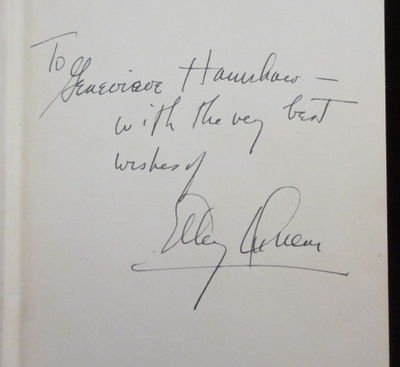 To
Genevieve Hamshaw —
with the very best
wishes of
Ellery Queen